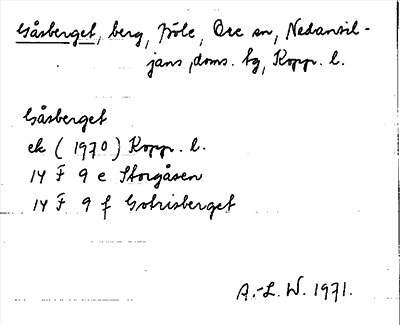 Gåsberget, berg, Jöle, Ore sn, Nedansil-
jans doms. tg, Kopp. l.
Gåsberget
ek (1970) Kopp. l.
14 F 9 e Storgåsen
14 F 9 f Gotrisberget
A.-L. W. 1971.